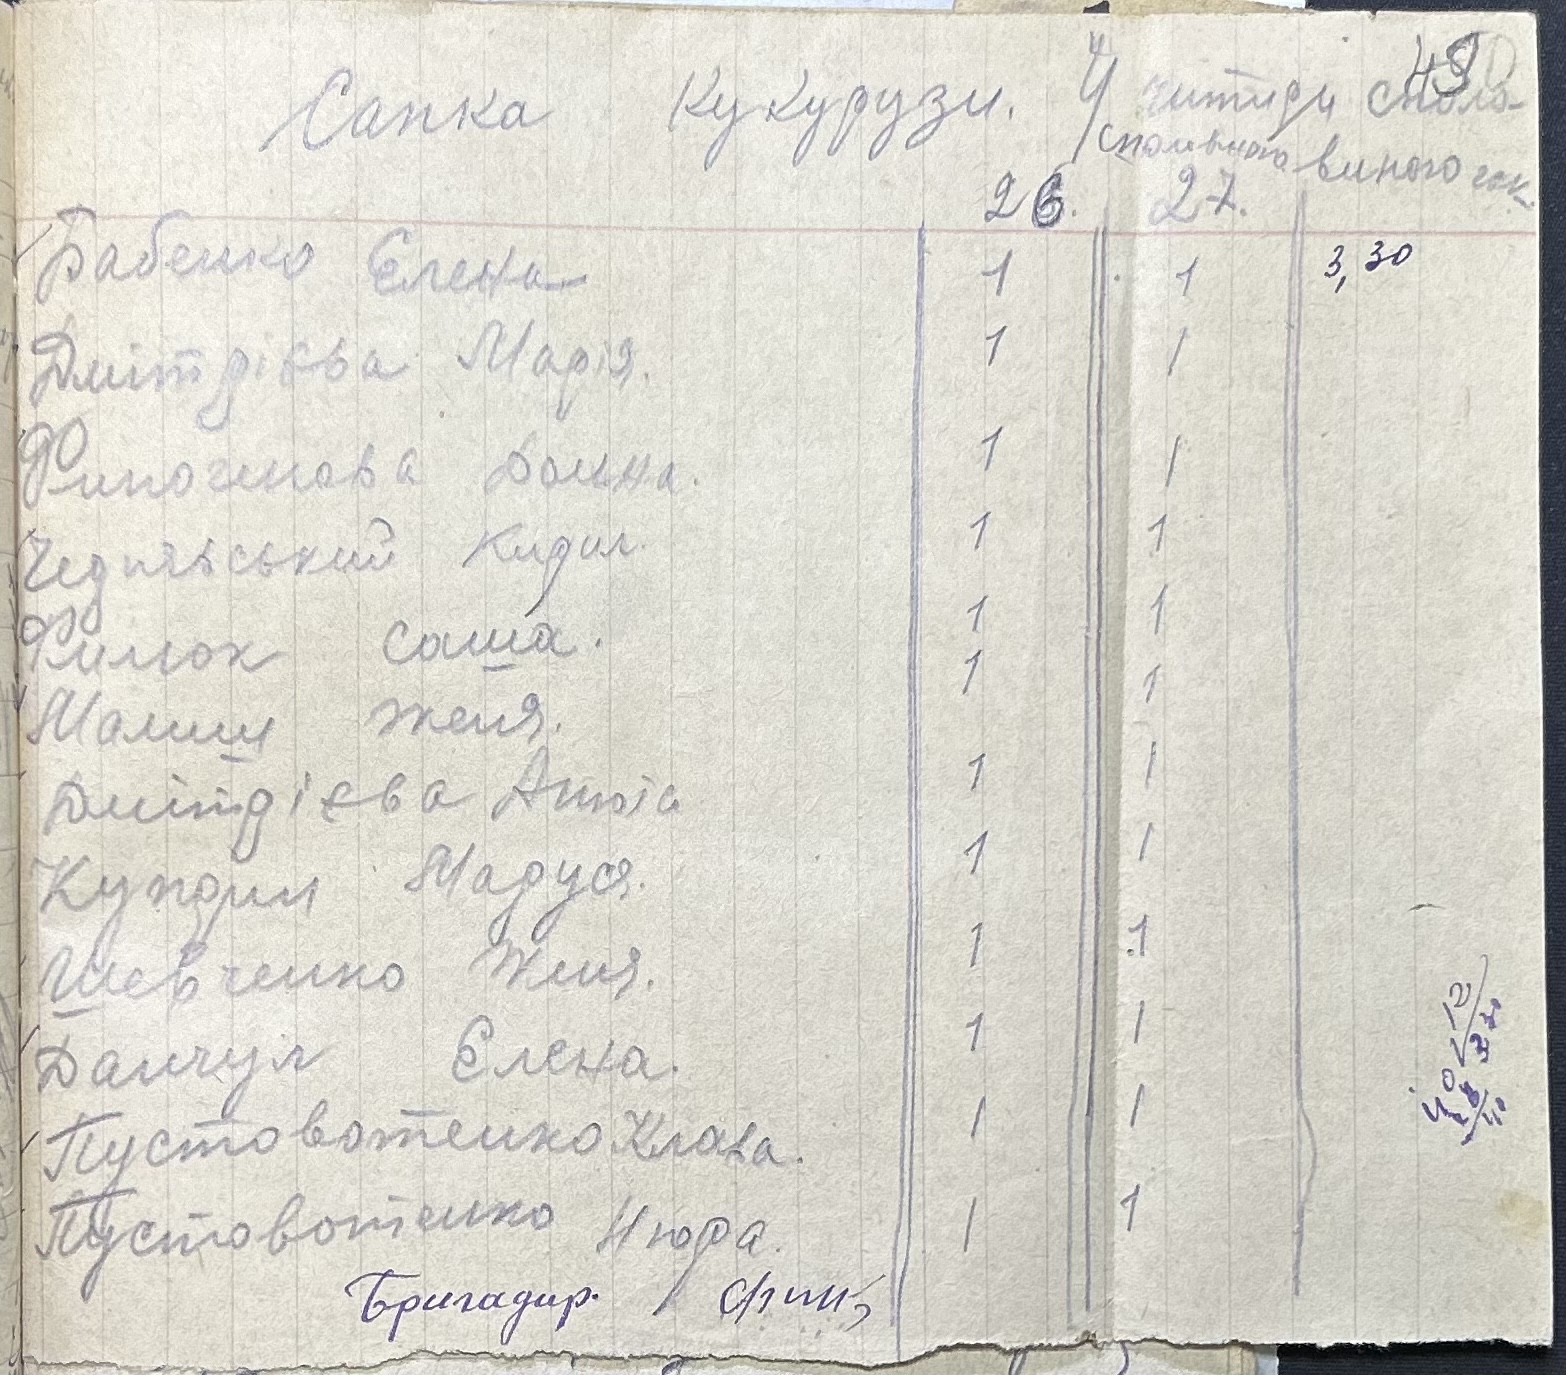 49
Сапка Кукурузи. 4 читири
виного гек.
26. 27.
Бабенко Єлена 1 1 3,30
Дмітрієва Марія. 1 1
Филогенова Домна. 1 1
Чернявський Кирил. 1 1
Филюк Саша. 1 1
Малиш Женя. 1 1
Дмітрієва Анюта 1 1
Куприл Маруся. 1 1
Шевченко Женя. 1 1
Данчул Єлена. 1 1
Пустовотенко Клава. 1 1
Пустовотенко Нюра. 1 1
Бригадир.